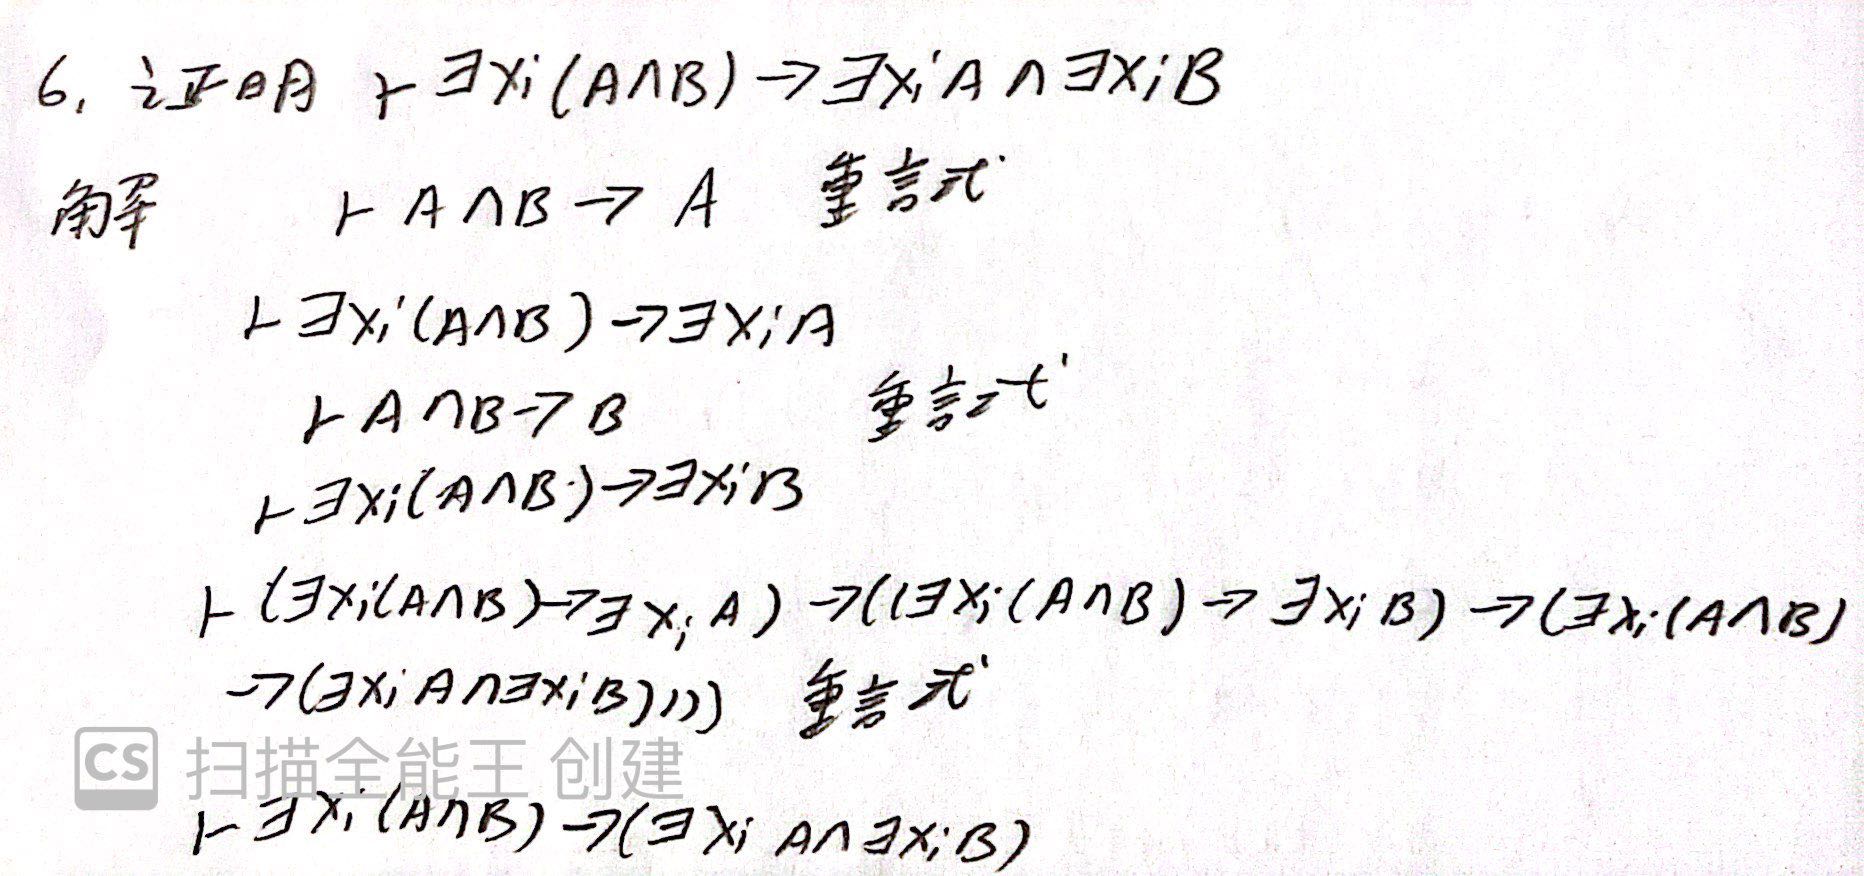 6. 证明 ⊢∃xi(A∩B)→∃xiA∩∃xiB
解 ⊢A∩B→A 重言式
⊢∃xi(A∩B)→∃xiA
⊢A∩B→B 重言式
⊢∃xi(A∩B)→∃xiB
⊢(∃xi(A∩B)→∃xiA)→((∃xi(A∩B)→∃xiB)→(∃xi(A∩B)
→(∃xiA∩∃xiB)))) 重言式
CS 扫描全能王 创建
⊢∃xi(A∩B)→(∃xiA∩∃xiB)